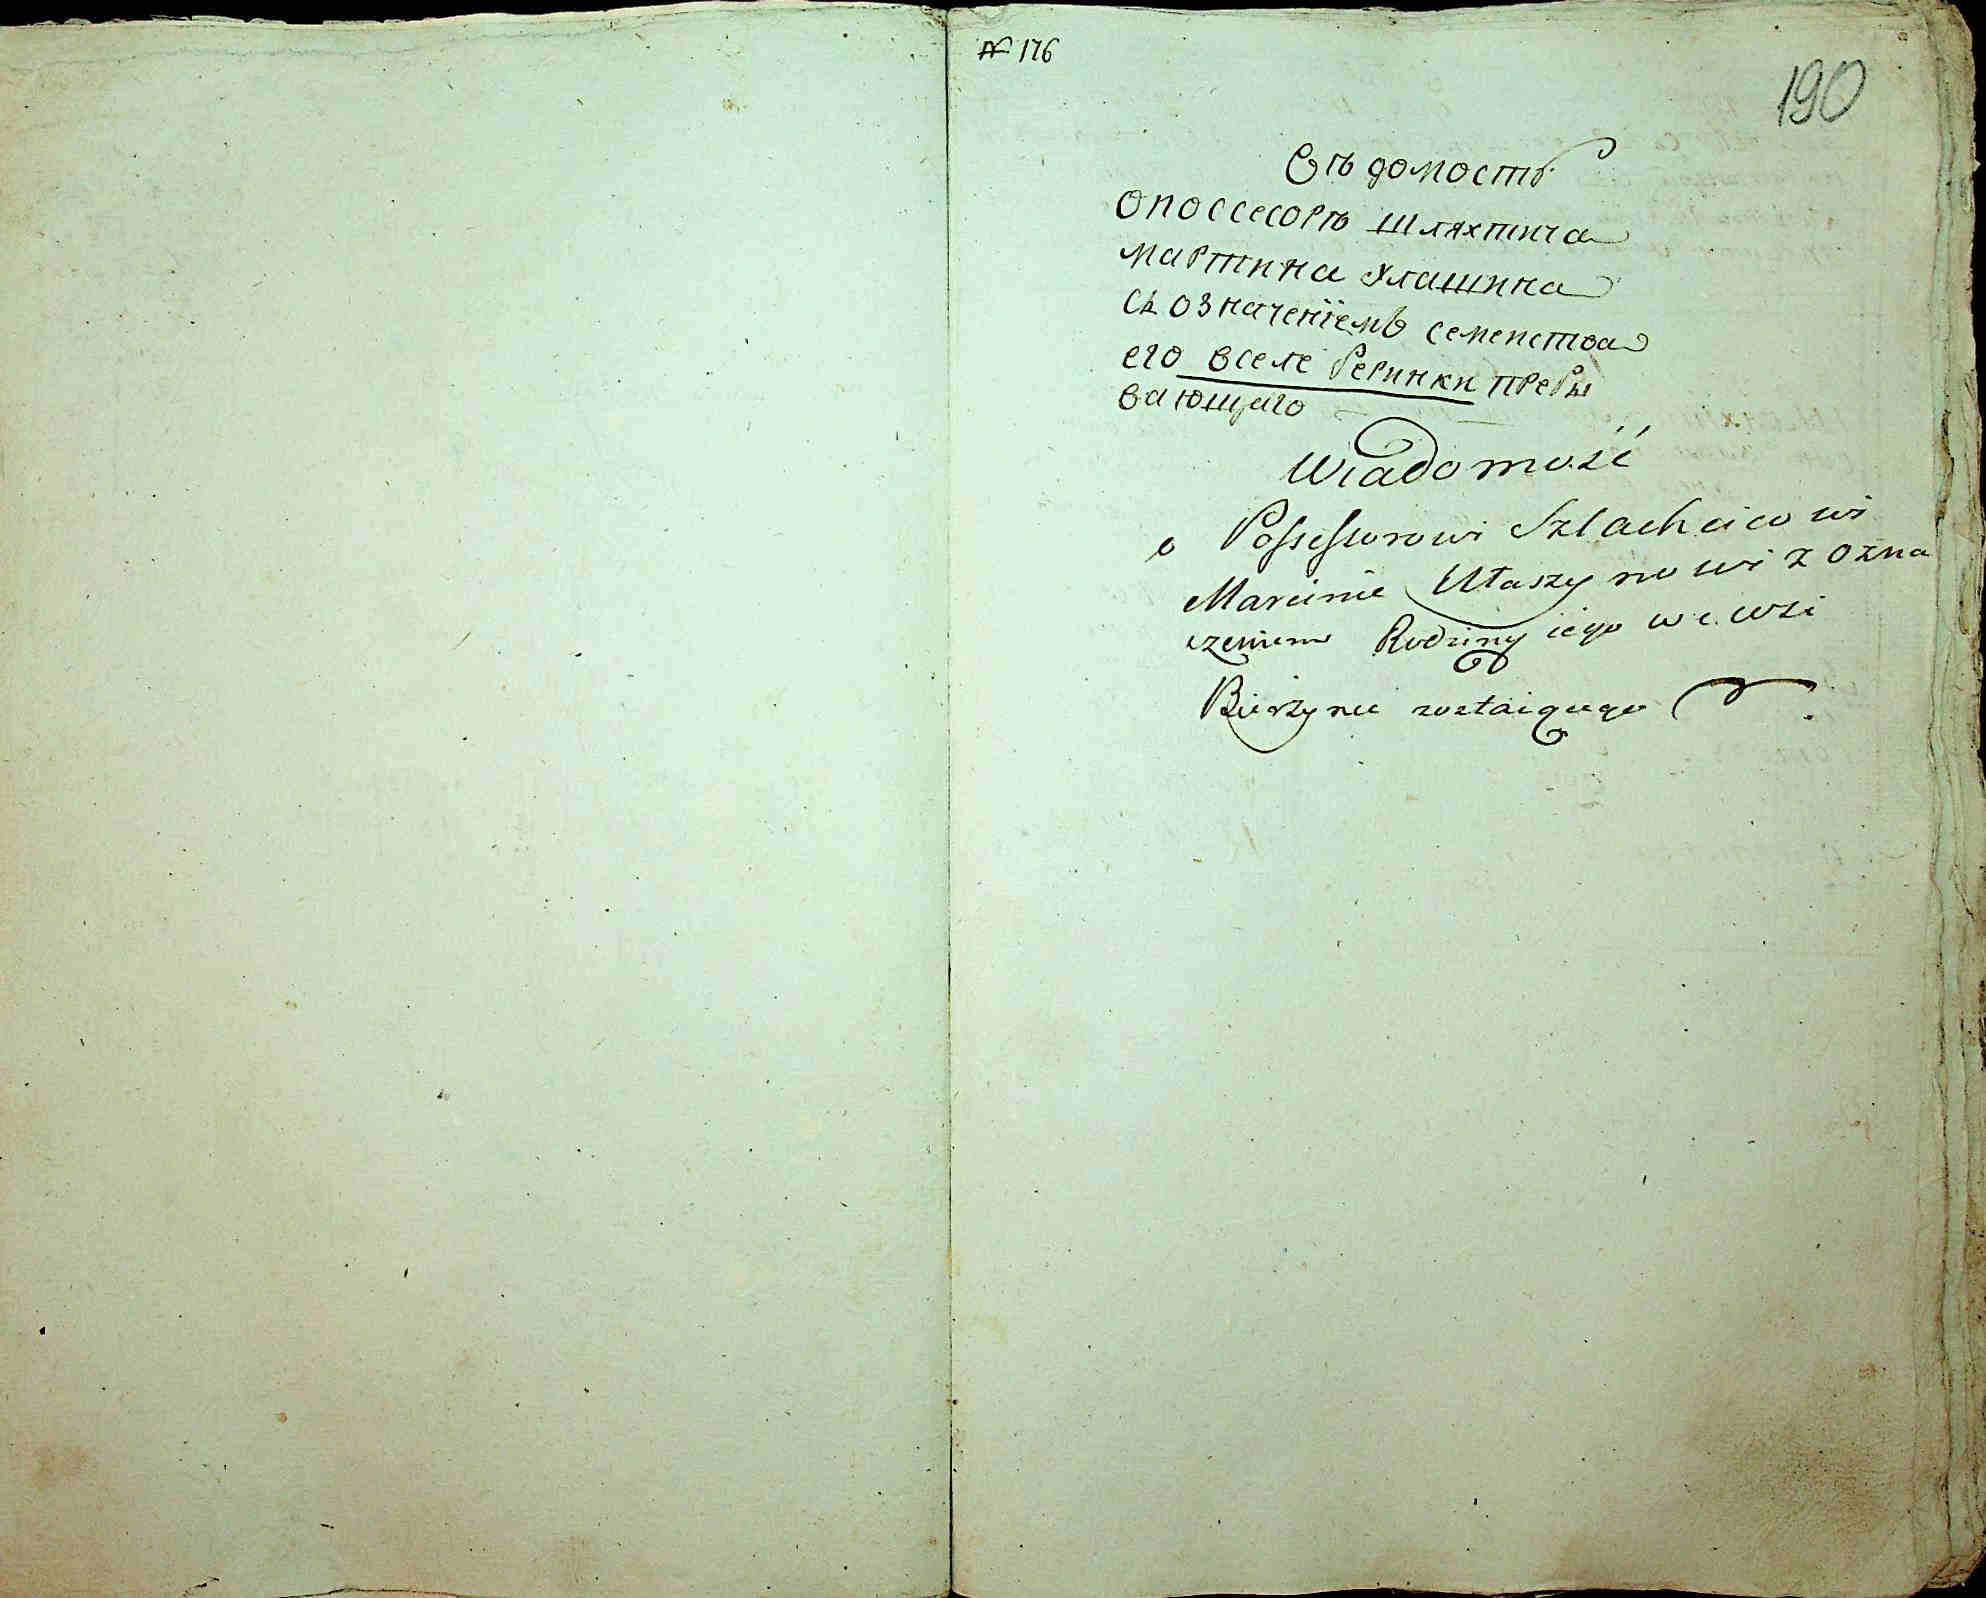 № 176
190
Вѣдомость
О поссесорѣ шляхтича
мартина Улашина
съ означенiемъ семейства
его вселе Режинки пребы
вающаго
Wiadomość
o Possessorowi Szlachcicowi
Marcinie Ułaszynowi z ozna
czeniem Rodziny iego we wsi
zostaiącego